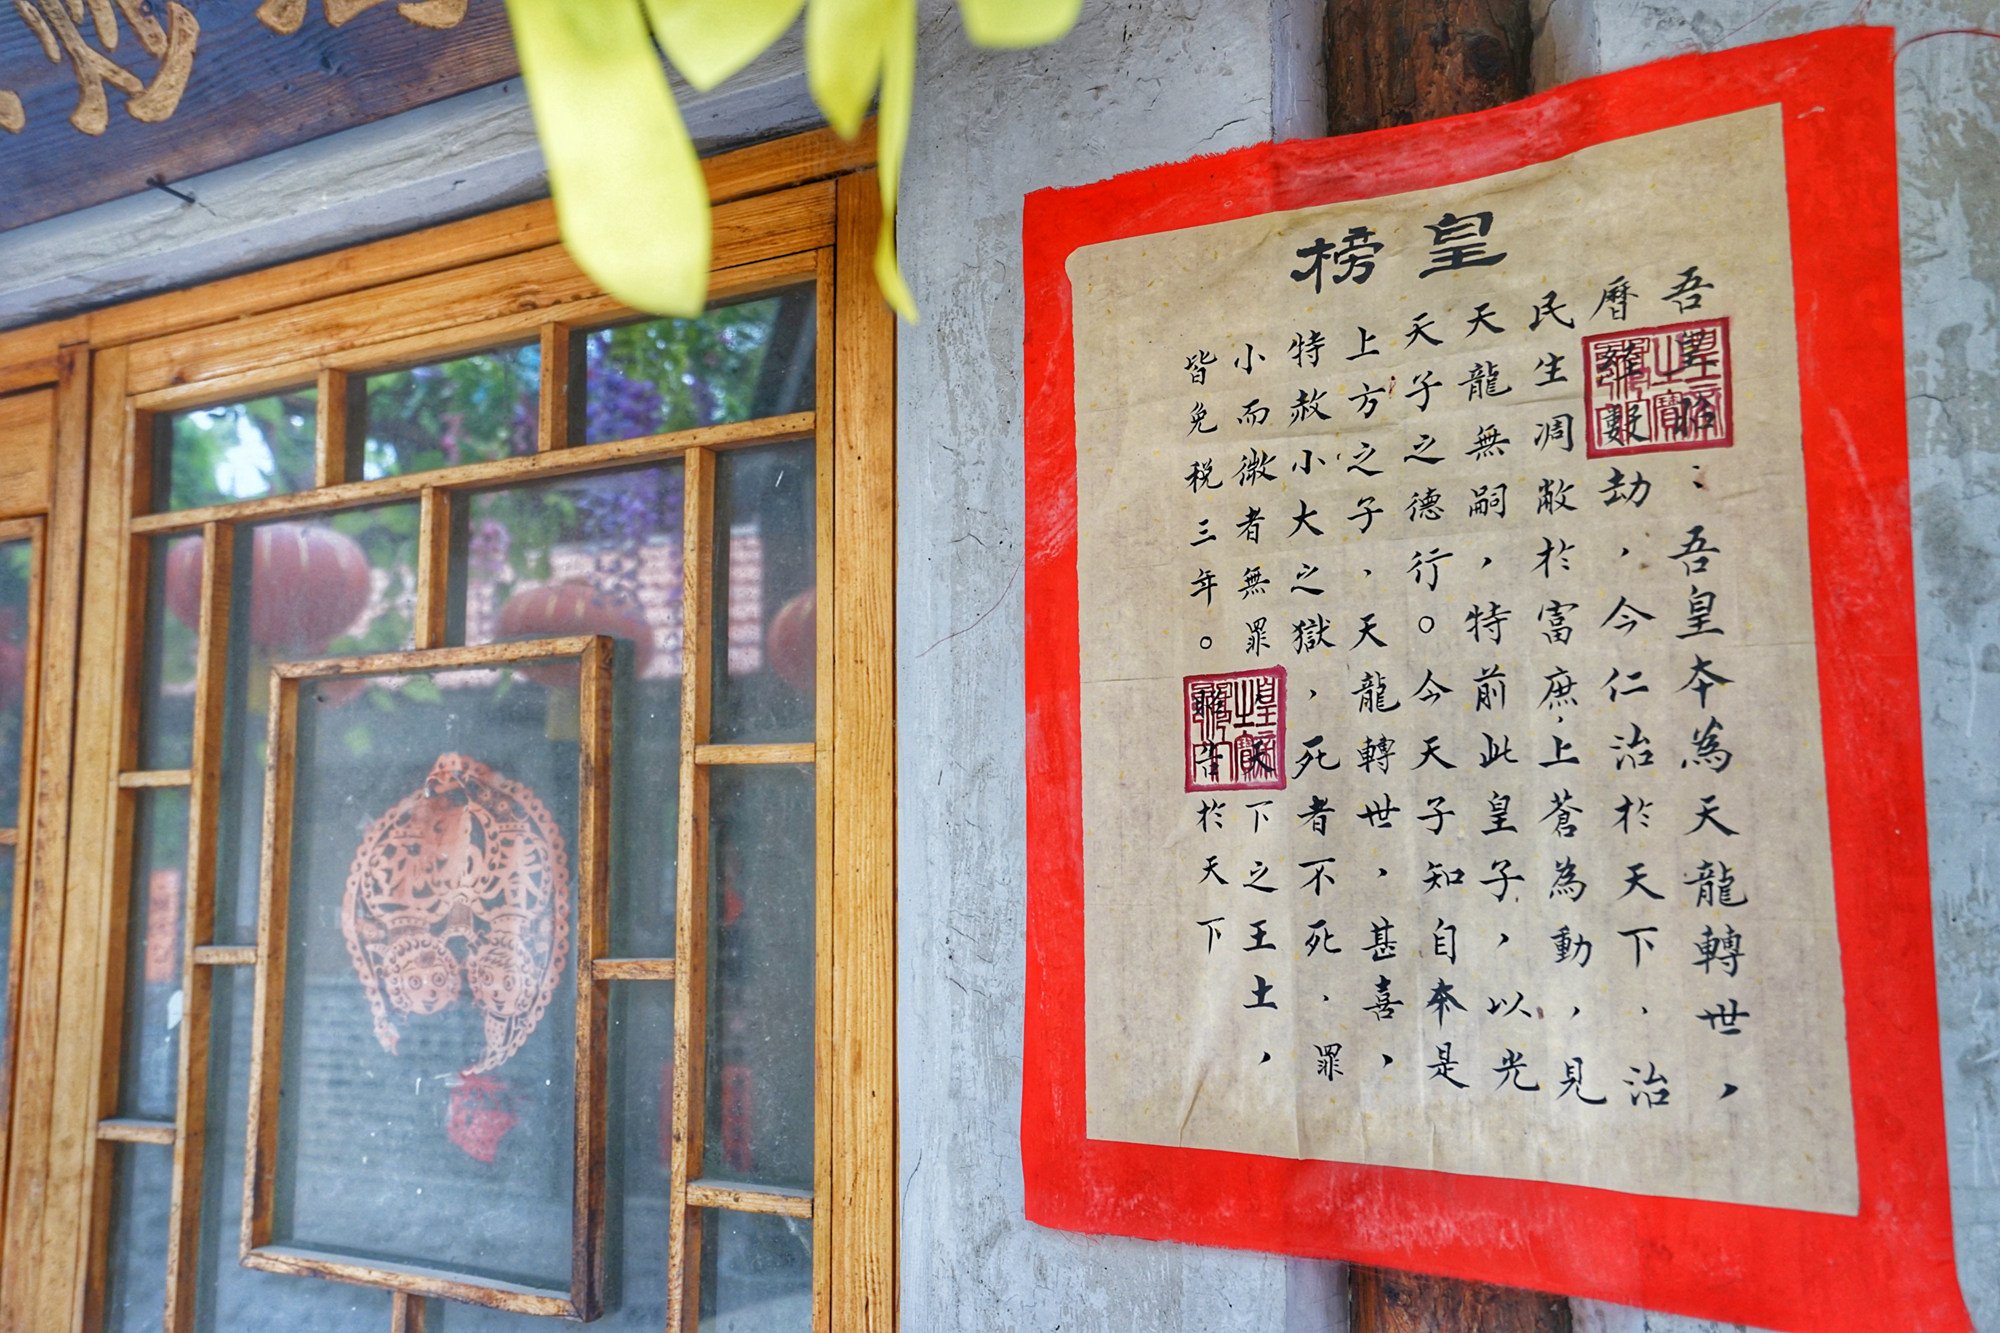 皇榜
吾皇昭：吾皇本為天龍轉世，
曆經數劫，今仁治於天下．治
民生凋敝於富庶，上蒼為動，見
天龍無嗣，特前此皇子，以光
天子之德行。今天子知自本是
上方之子，天龍轉世，甚喜，
特赦小大之獄，死者不死．罪
小而微者無罪 天下之王土，
皆免税三年。告於天下